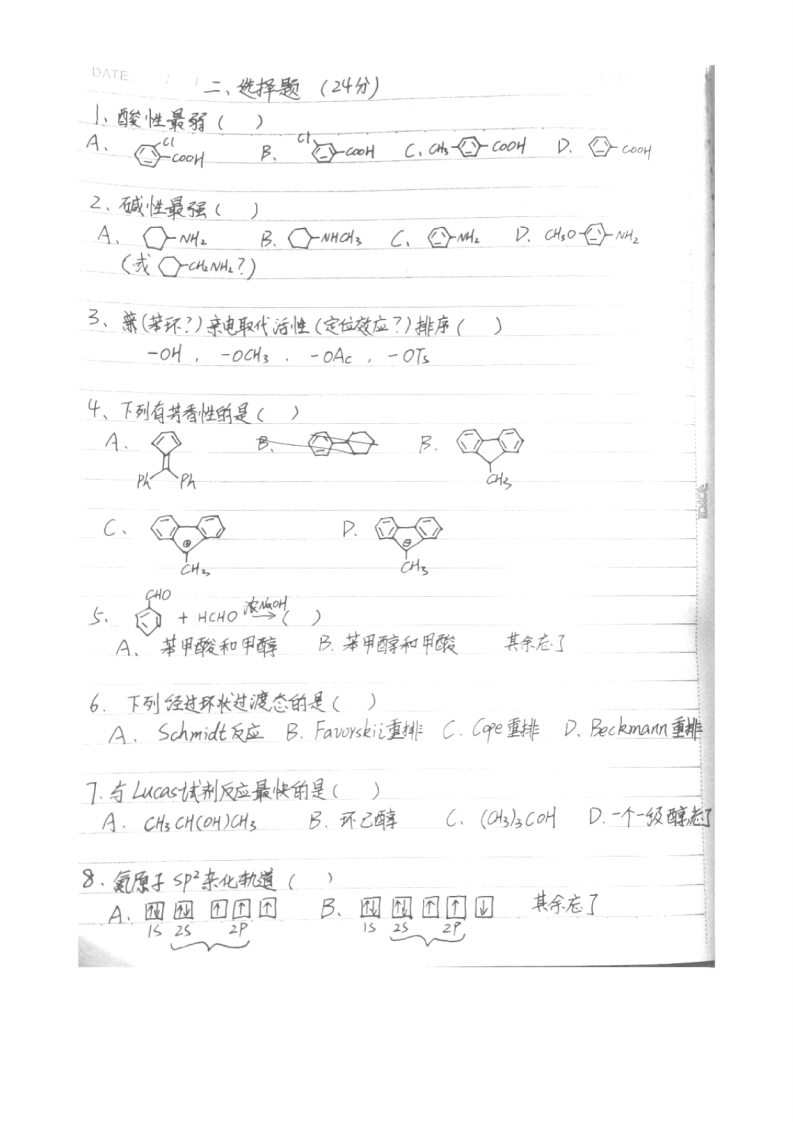 DATE. / /
二、选择题 (24分)
1、酸性最弱( )
A. Cl COOH B. Cl COOH C. CH₃ COOH D. COOH
2、碱性最强( )
A. NH₂ B. NHCH₃ C. NH₂ D. CH₃O NH₂
(或 CH₂NH₂?)
3、 (苯环?)亲电取代活性(定位效应?)排序( )
-OH , -OCH₃ , -OAc , -OTs
4、下列有芳香性的是( )
A. Ph Ph B. B. CH₃
C. ⊕ CH₃ D. ⊖ CH₃
5. CHO + HCHO 浓NaOH → ( )
A. 苯甲酸和甲醇 B. 苯甲醇和甲酸 其余忘了
6. 下列经过环状过渡态的是( )
A. Schmidt反应 B. Favorskii重排 C. Cope重排 D. Beckmann重排
7.与Lucas试剂反应最快的是( )
A. CH₃CH(OH)CH₃ B. 环己醇 C. (CH₃)₃COH D.一个一级醇忘了
8. 氮原子sp²杂化轨道( )
A. ↑↓ ↑↓ ↑ ↑ ↑ B. ↑↓ ↑↓ ↑ ↑ ↓ 其余忘了
1S 2S 2P 1S 2S 2P